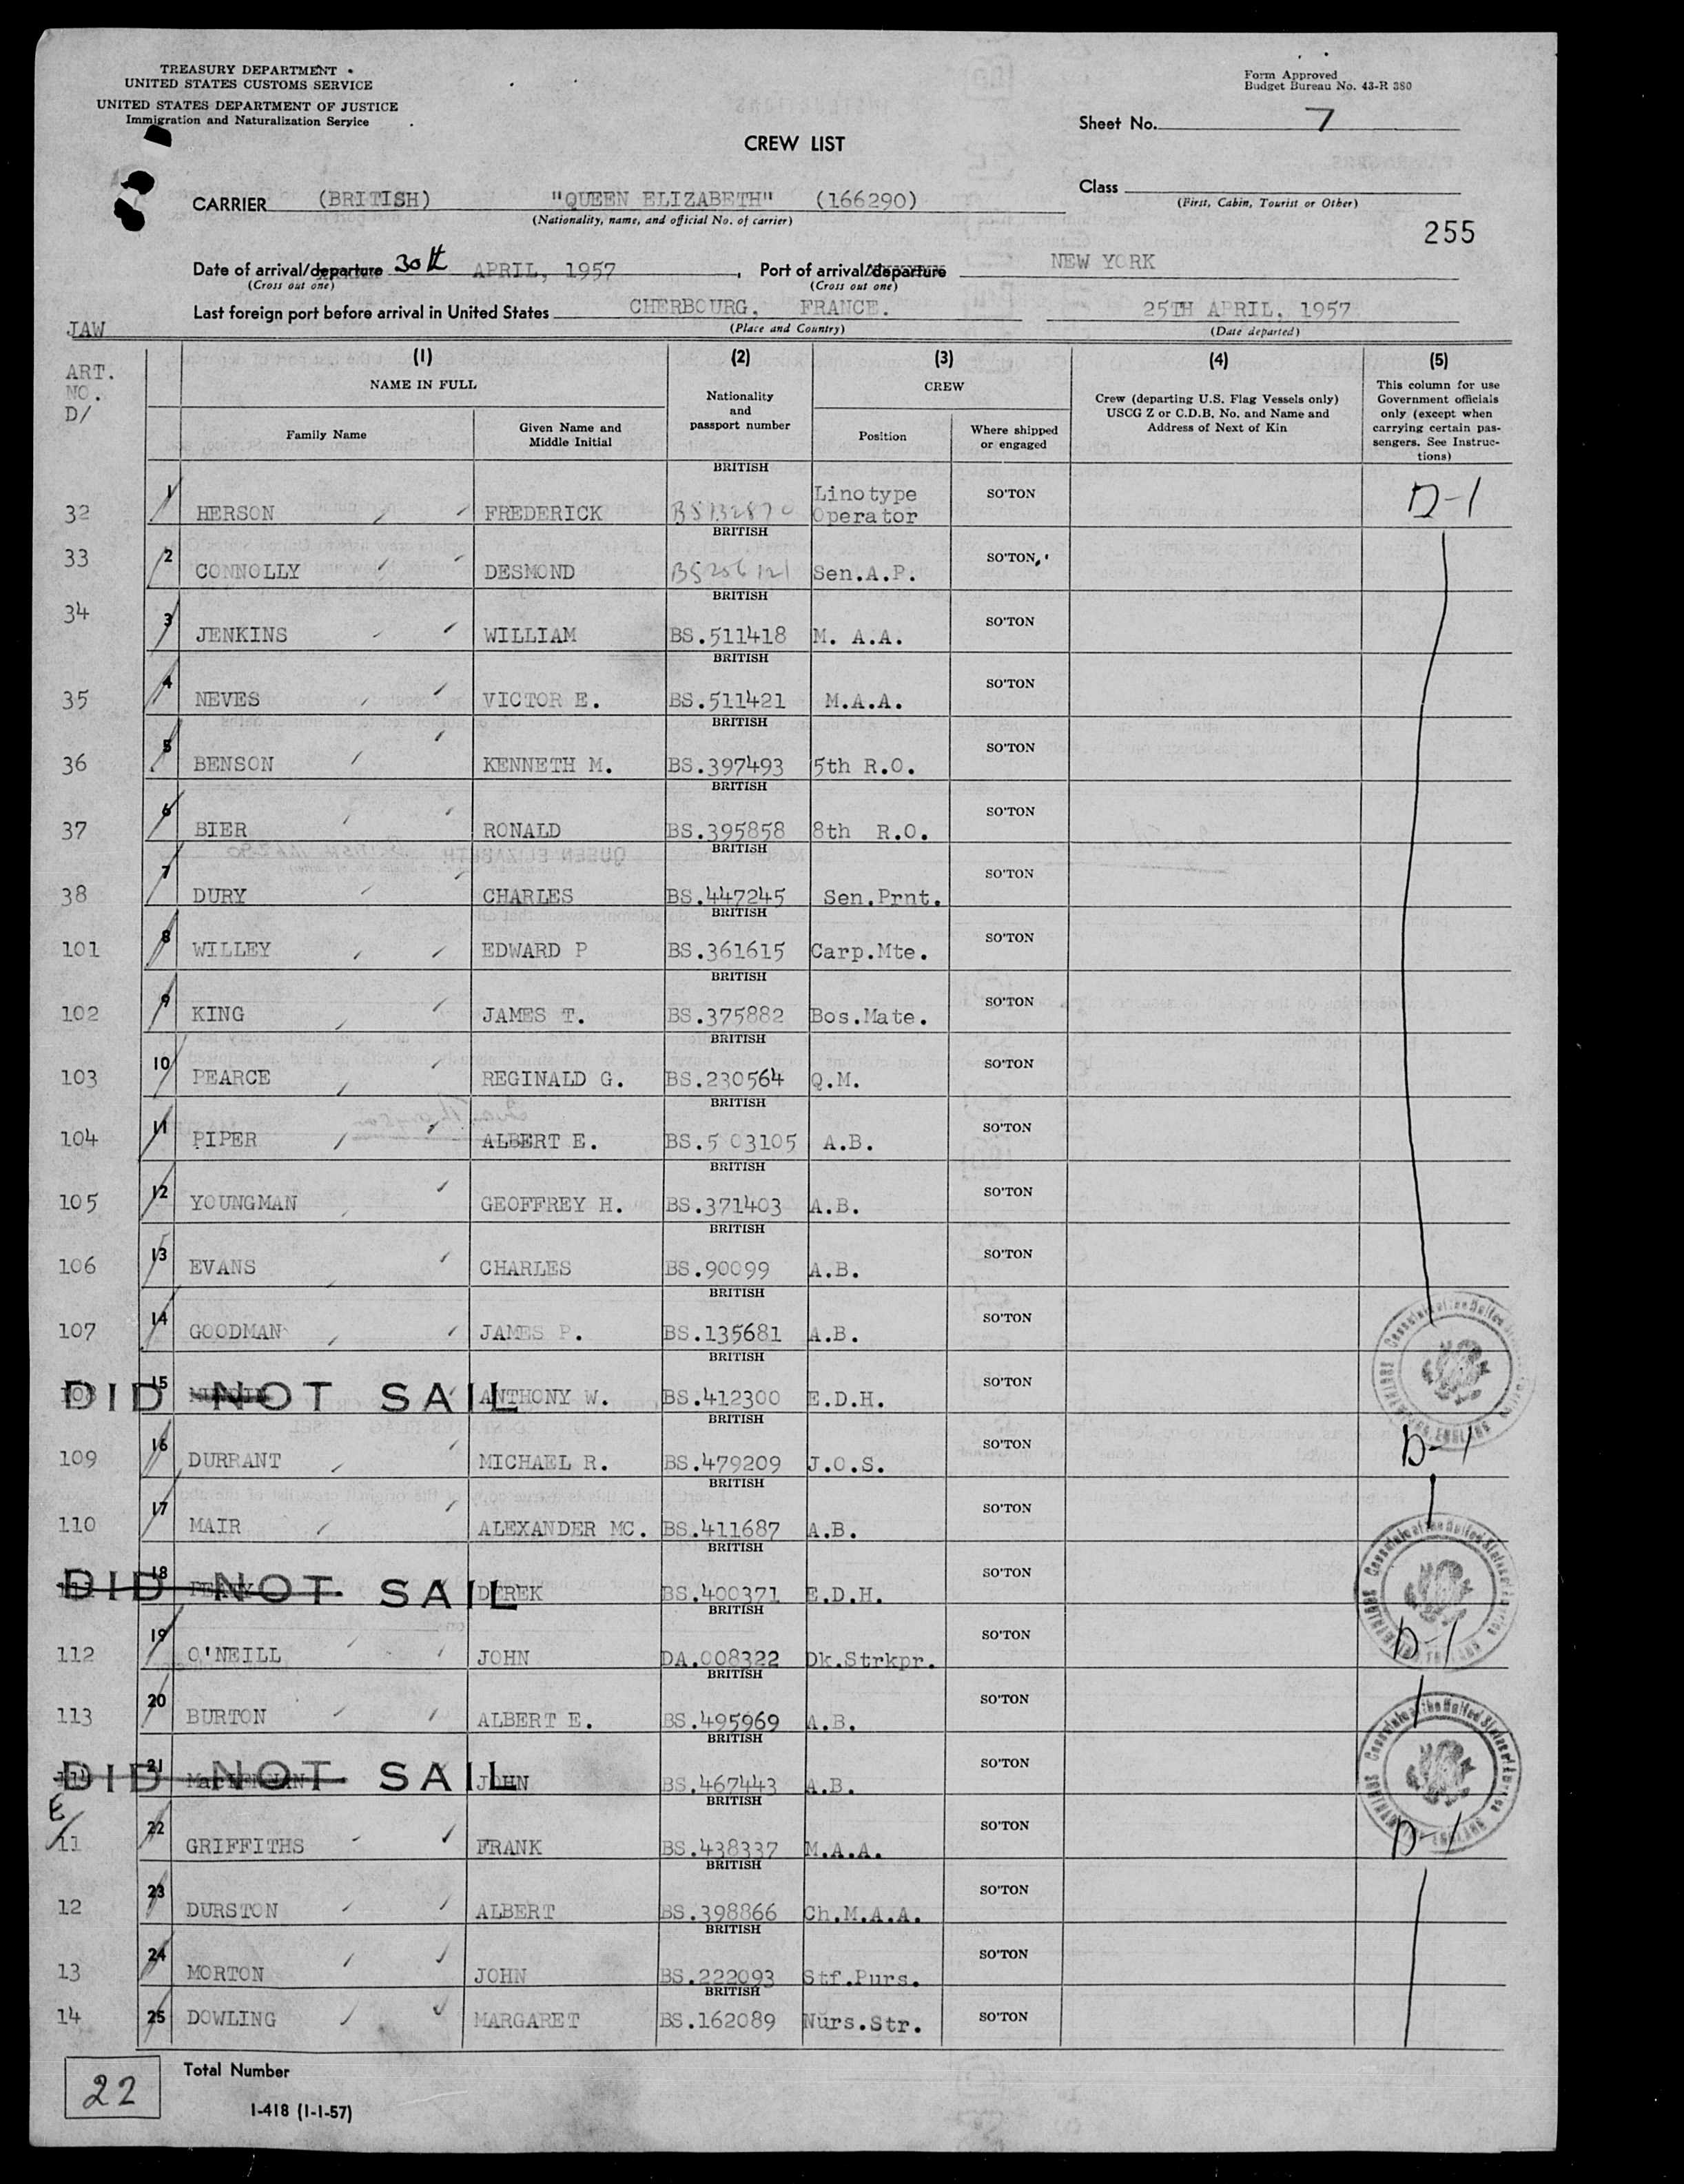 TREASURY DEPARTMENT
UNITED STATES CUSTOMS SERVICE
UNITED STATES DEPARTMENT OF JUSTICE
Immigration and Naturalization Service
Form Approved
Budget Bureau No. 43-R 380
Sheet No. 7
CREW LIST
Class
(First, Cabin, Tourist or Other)
CARRIER (BRITISH) "QUEEN ELIZABETH" (166290)
(Nationality, name, and official No. of carrier)
255
Date of arrival/departure 30th APRIL, 1957, Port of arrival/departure NEW YORK
(Cross out one) (Cross out one)
Last foreign port before arrival in United States CHERBOURG, FRANCE. 25TH APRIL, 1957
(Place and Country) (Date departed)
JAW
ART. NO. D/
(1) NAME IN FULL
Family Name
Given Name and Middle Initial
(2) Nationality and passport number
(3) CREW
Position
Where shipped or engaged
(4) Crew (departing U.S. Flag Vessels only) USCG Z or C.D.B. No. and Name and Address of Next of Kin
(5) This column for use Government officials only (except when carrying certain passengers. See Instructions)
32 1 HERSON FREDERICK BRITISH Linotype Operator SO'TON D-1
33 2 CONNOLLY DESMOND BRITISH BS256121 Sen.A.P. SO'TON
34 3 JENKINS WILLIAM BRITISH BS.511418 M. A.A. SO'TON
35 4 NEVES VICTOR E. BRITISH BS.511421 M.A.A. SO'TON
36 5 BENSON KENNETH M. BRITISH BS.397493 5th R.O. SO'TON
37 6 BIER RONALD BRITISH BS.395858 8th R.O. SO'TON
38 7 DURY CHARLES BRITISH BS.447245 Sen.Prnt. SO'TON
101 8 WILLEY EDWARD P BRITISH BS.361615 Carp.Mte. SO'TON
102 9 KING JAMES T. BRITISH BS.375882 Bos.Mate. SO'TON
103 10 PEARCE REGINALD G. BRITISH BS.230564 Q.M. SO'TON
104 11 PIPER ALBERT E. BRITISH BS.5 03105 A.B. SO'TON
105 12 YOUNGMAN GEOFFREY H. BRITISH BS.371403 A.B. SO'TON
106 13 EVANS CHARLES BRITISH BS.90099 A.B. SO'TON
107 14 GOODMAN JAMES P. BRITISH BS.135681 A.B. SO'TON
108 15 DID NOT SAIL ANTHONY W. BRITISH BS.412300 E.D.H. SO'TON
109 16 DURRANT MICHAEL R. BRITISH BS.479209 J.O.S. SO'TON D-1
110 17 MAIR ALEXANDER MC. BRITISH BS.411687 A.B. SO'TON
18 DID NOT SAIL DEREK BRITISH BS.400371 E.D.H. SO'TON
112 19 O'NEILL JOHN BRITISH DA.008322 Dk.Strkpr. SO'TON D-1
113 20 BURTON ALBERT E. BRITISH BS.495969 A.B. SO'TON
21 DID NOT SAIL JOHN BRITISH BS.467443 A.B. SO'TON
E/11 22 GRIFFITHS FRANK BRITISH BS.438337 M.A.A. SO'TON D-1
12 23 DURSTON ALBERT BRITISH BS.398866 Ch.M.A.A. SO'TON
13 24 MORTON JOHN BRITISH BS.222093 Stf.Purs. SO'TON
14 25 DOWLING MARGARET BRITISH BS.162089 Nurs.Str. SO'TON
22 Total Number
I-418 (1-1-57)